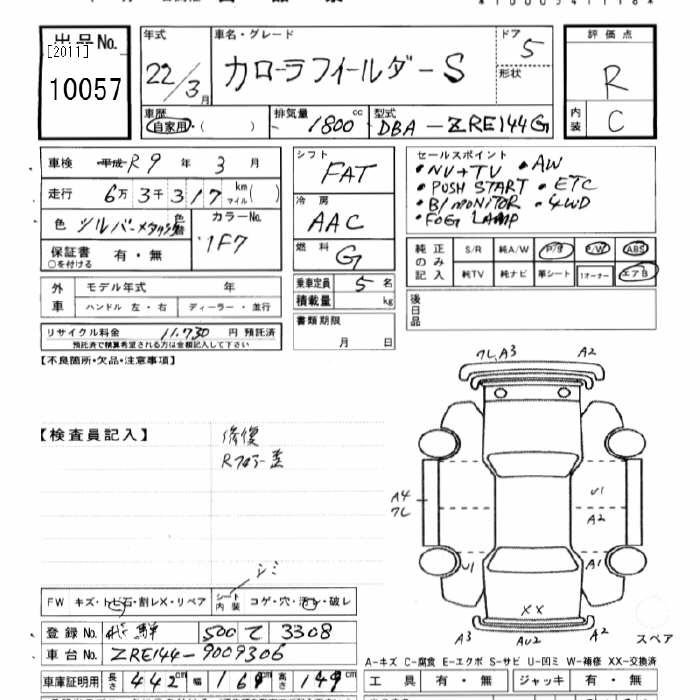 出品No.
[2011]
10057
年式
22/3月
車名・グレード
カローラフィールダーS
ドア
5
形状
評価点
R
内装
C
車歴
自家用・( )
排気量
1800 cc
型式
DBA-ZRE144G
車検
平成 R9 年 3 月
走行
6万3千317 km マイル( )
色
シルバーメタリック
色替
カラーNo.
1F7
保証書
○を付ける
有・無
シフト
FAT
冷房
AAC
燃料
G
セールスポイント
・NV+TV ・AW
・PUSH START ・ETC
・B/MONITOR ・4WD
・FOG LAMP
純正のみ記入
S/R 純A/W P/S P/W ABS
純TV 純ナビ 革シート 1オーナー エアB
外車
モデル年式 年
ハンドル 左・右 ディーラー・並行
乗車定員 5 名
積載量 kg
後日品
リサイクル料金 11,730 円 預託済
預託済で精算希望される方は金額記入して下さい
書類期限
月 日
【不良箇所・欠品・注意事項】
【検査員記入】
修復
Rフロアー歪
シミ
フレ、A3
A2
A4
フレ
U1
A2
U1
A1
XX
A3
AU2
A2
スペア
FW キズ・トビ石・割レX・リペア
シート内装 コゲ・穴・汚レ・破レ
登録No. 飛騨 500 て 3308
車台No. ZRE144-9009306
車庫証明用 長さ 442cm 幅 169cm 高さ 149cm
A-キズ C-腐食 E-エクボ S-サビ U-凹ミ W-補修 XX-交換済
工具 有・無 ジャッキ 有・無